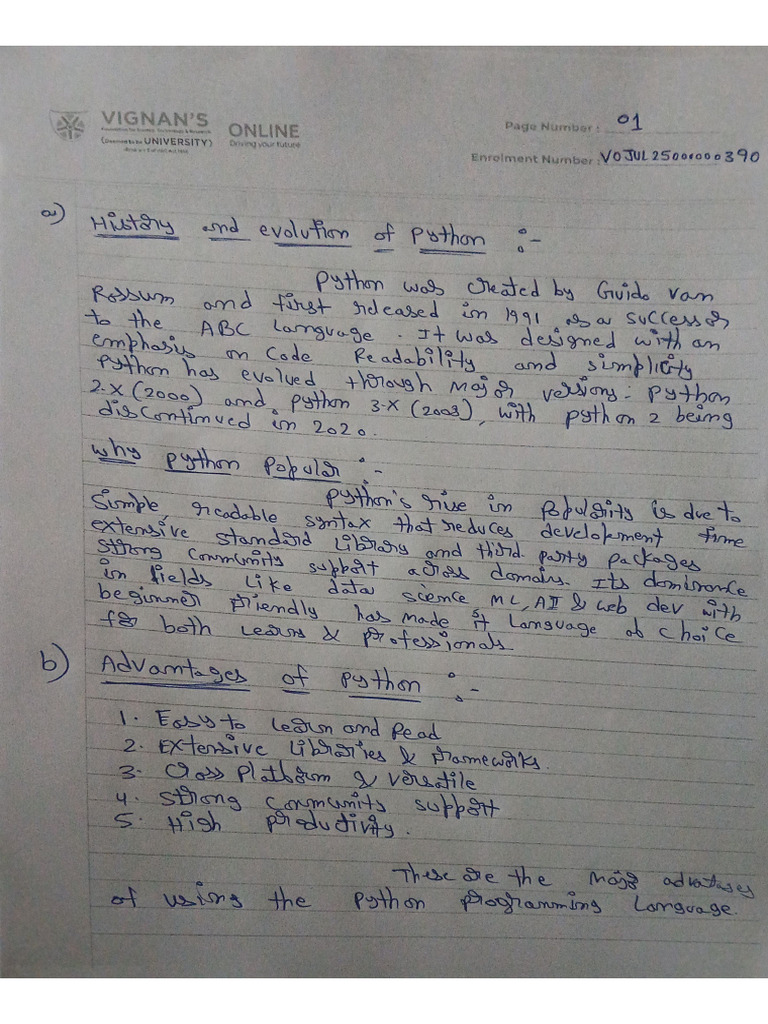 VIGNAN'S
(Deemed to be UNIVERSITY)
ONLINE
Driving your future
Page Number : 01
Enrolment Number : VOJUL25000000390
a) History and evolution of Python :-
Python was created by Guido van
Rossum and first released in 1991 as a successor
to the ABC Language. It was designed with an
emphasis on Code Readability and simplicity
Python has evolved through major versions: Python
2.X (2000) and Python 3.X (2008), with Python 2 being
discontinued in 2020.
Why Python Popular :-
Python's rise in Popularity is due to
Simple, readable syntax that reduces development time
extensive standard Library and third party packages
strong community support across domains. Its dominance
in fields Like data science ML, AI & web dev with
beginner friendly has made it Language of choice
for both Learns & Professionals.
b) Advantages of Python :-
1. Easy to Learn and Read
2. Extensive Libraries & frameworks.
3. Cross Platform & Versatile
4. Strong Community support
5. High Productivity.
These are the Major advatages
of using the Python Programming Language.